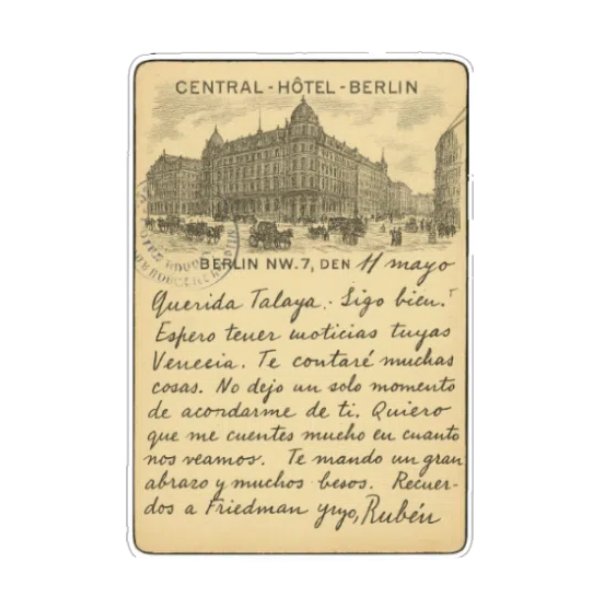 CENTRAL-HÔTEL-BERLIN
BERLIN NW. 7, DEN 11 mayo
Querida Talaya.- Sigo bien.
Espero tener noticias tuyas
Venecia. Te contaré muchas
cosas. No dejo un solo momento
de acordarme de ti. Quiero
que me cuentes mucho en cuanto
nos veamos. Te mando un gran
abrazo y muchos besos. Recuer-
dos a Friedman y Rubén